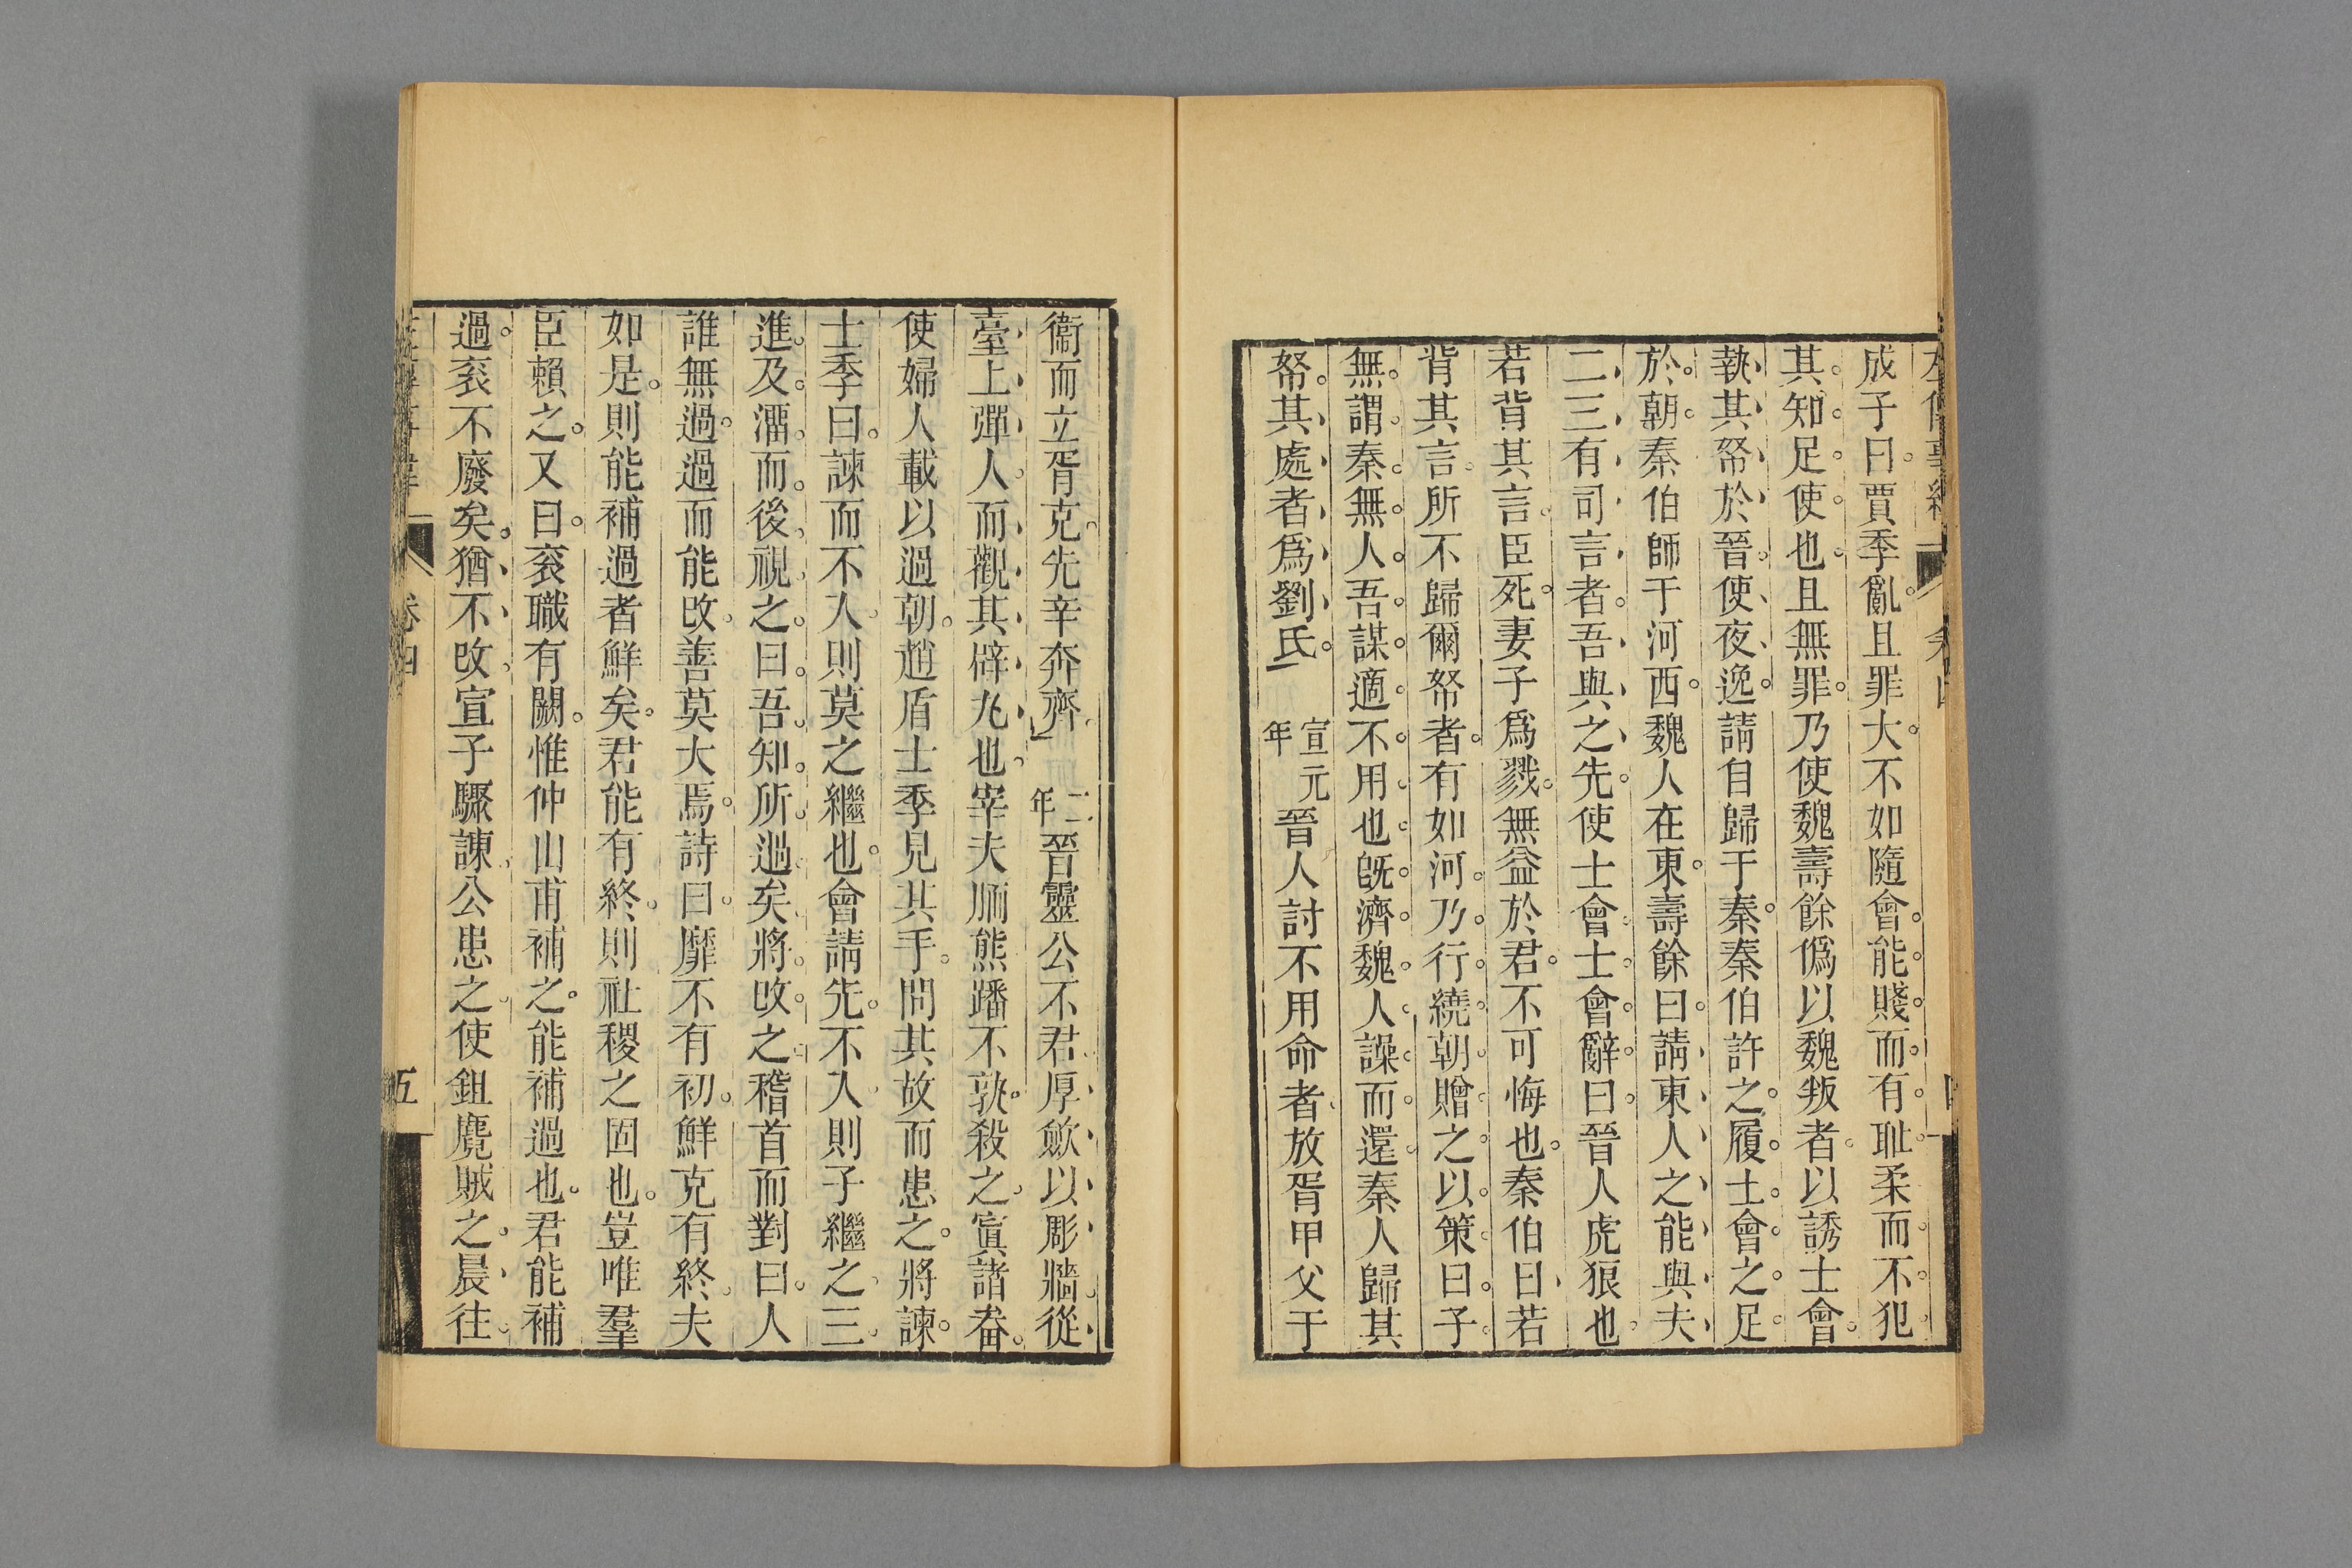 成子曰賈季亂且罪大不如隨會能賤而有恥柔而不犯
其知足使也且無罪乃使魏壽餘僞以魏叛者以誘士會
執其帑於晉使夜逸請自歸于秦秦伯許之履士會之足
於朝秦伯師于河西魏人在東壽餘曰請東人之能與夫
二三有司言者吾與之先使士會士會辭曰晉人虎狼也
若背其言臣死妻子爲戮無益於君不可悔也秦伯曰若
背其言所不歸爾帑者有如河乃行繞朝贈之以策曰子
無謂秦無人吾謀適不用也旣濟魏人譟而還秦人歸其
帑其處者爲劉氏
宣元
年
晉人討不用命者放胥甲父于
衞而立胥克先辛奔齊
二
年
晉靈公不君厚斂以彫牆從
臺上彈人而觀其辟丸也宰夫胹熊蹯不孰殺之寘諸畚
使婦人載以過朝趙盾士季見其手問其故而患之將諫
士季曰諫而不入則莫之繼也會請先不入則子繼之三
進及溜而後視之曰吾知所過矣將改之稽首而對曰人
誰無過過而能改善莫大焉詩曰靡不有初鮮克有終夫
如是則能補過者鮮矣君能有終則社稷之固也豈唯羣
臣賴之又曰衮職有闕惟仲山甫補之能補過也君能補
過衮不廢矣猶不改宣子驟諫公患之使鉏麑賊之晨往
卷四
五